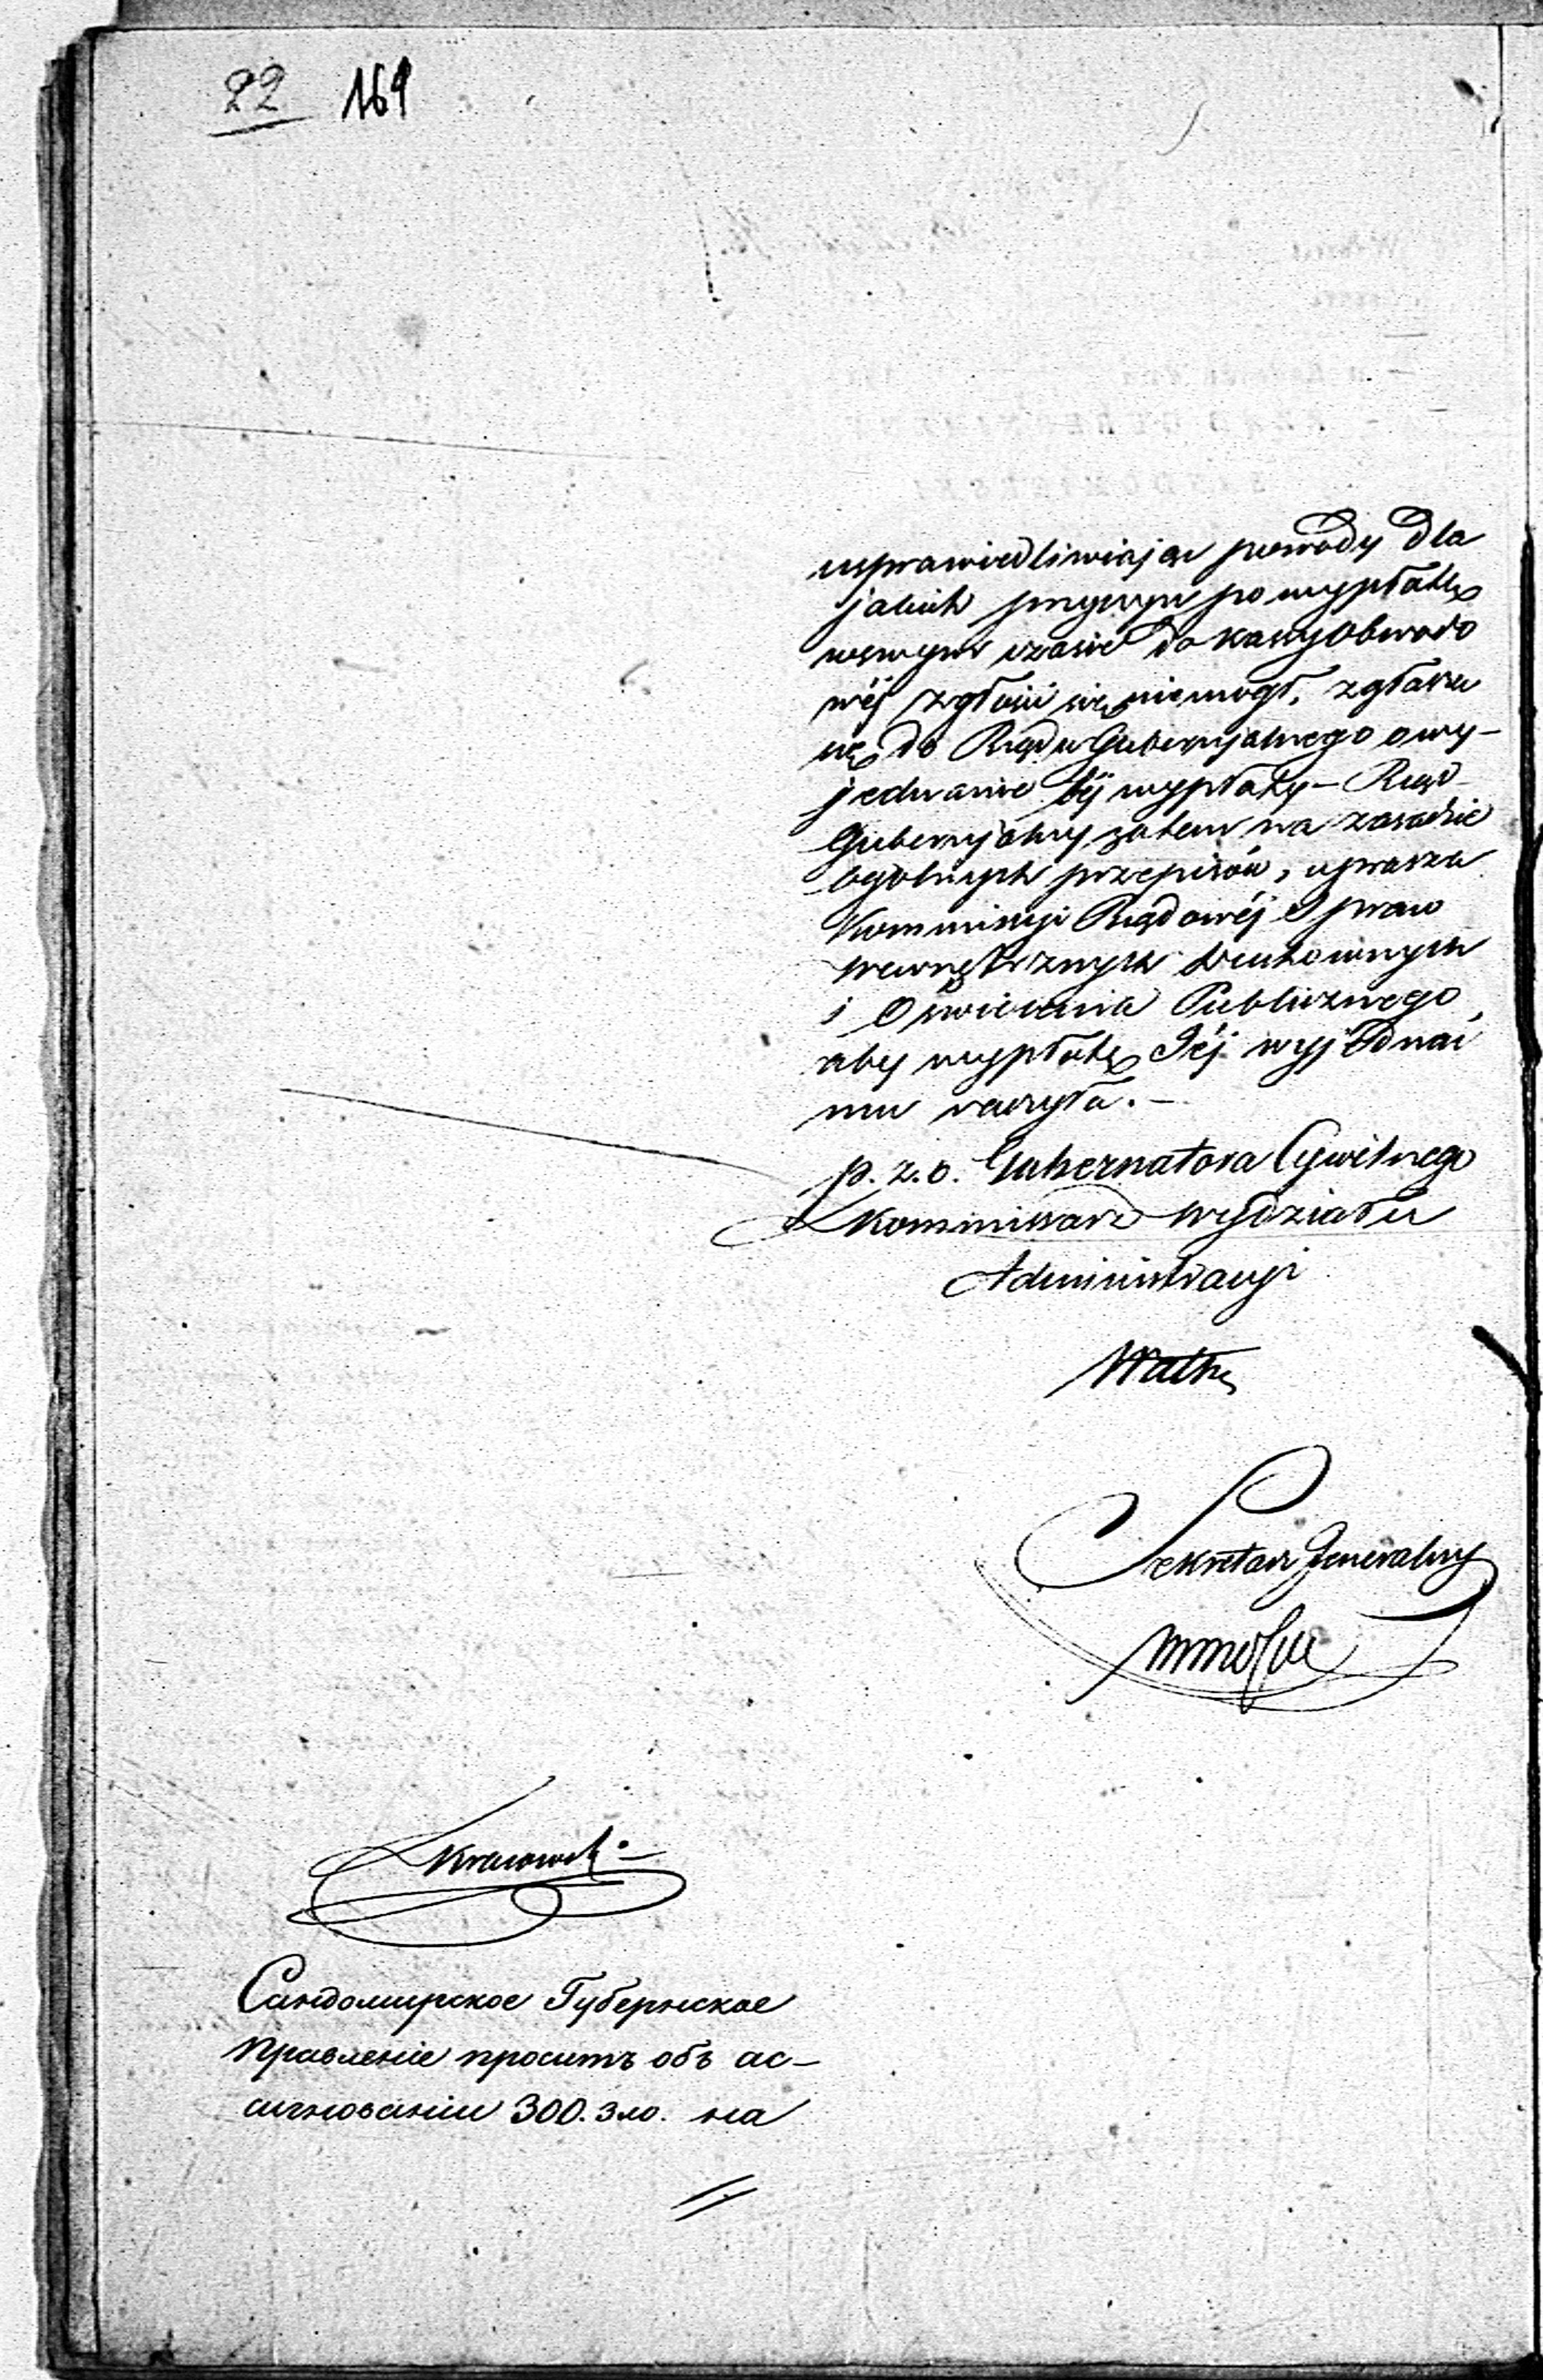 22 169
usprawiedliwiając powody dla
jakich przyczyn po wypłatę
wswym czasie do Kassy Obwodo
wéj zgłosić się niemógł, zgłasza
się do Rządu Gubernyalnego o wy-
jednanie téj wypłaty – Rząd
Gubernyalny zatem na zasadzie
ogólnych przepisów, uprasza
Kommissyi Rządowéj Spraw
Wewnętrznych Duchownych
i Oświecenia Publicznego,
aby wypłatę Jéj wyjednać
mu raczyła. –
p. z. o. Gubernatora Cywilnego
Kommissarz Wydziału
Administracyi
Sekretarz Generalny
Сандомирское Губернское
Правленіе проситъ объ ас-
сигнованіи 300. зло. на